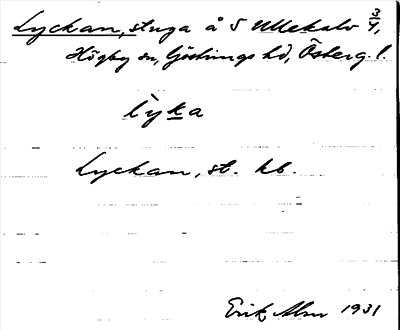 Lyckan, stuga å S Ullekalv
Högby sn, Göstrings hd, Österg. l.
lyka
Lyckan, st. hb.
Erik Alm 1931